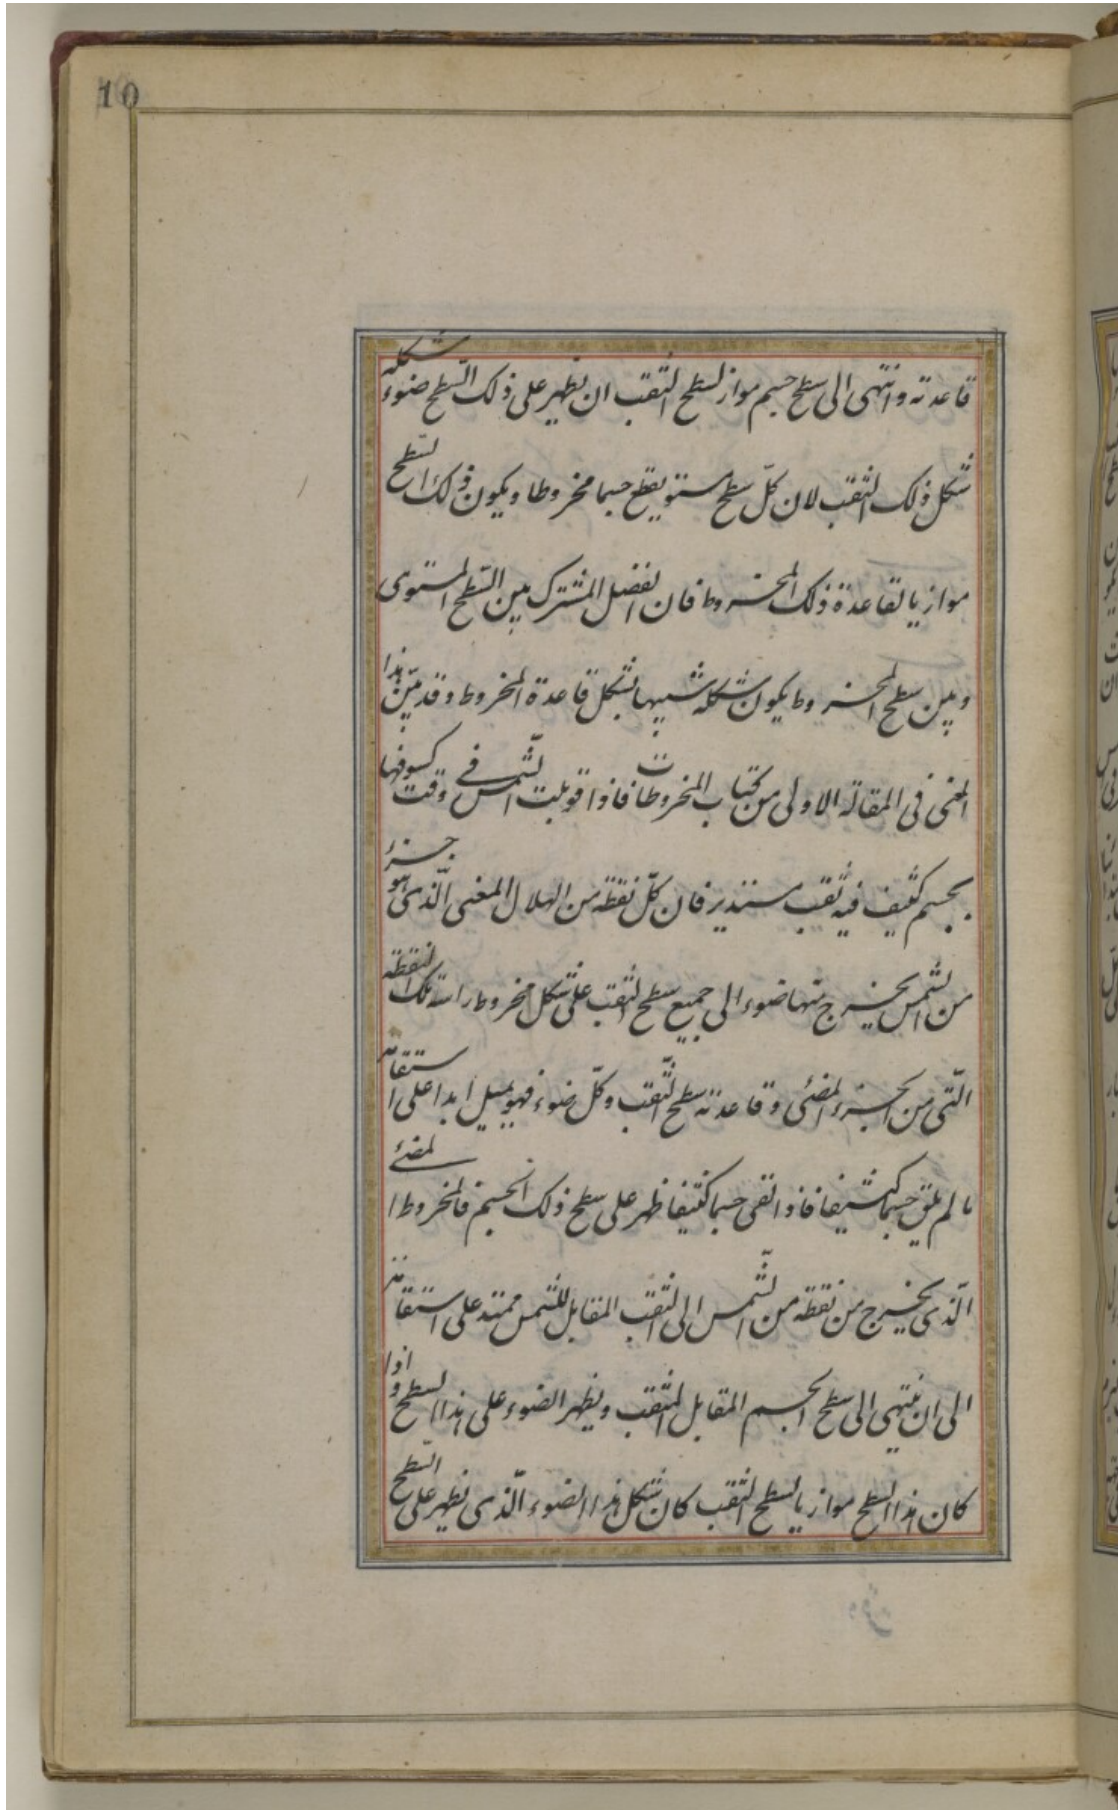 10
قاعدته وانتهى الى سطح جسم مواز لسطح الثقب ان يظهر على ذلك السّطح ضوء شكله
شكل ذلك الثقب لان كلّ سطح مستو يقطع جسما مخروطا ويكون ذلك السّطح
موازيا لقاعدة ذلك المخروط فان الفصل المشترك بين السّطح المستوى
وبين سطح المخروط يكون شكله شبيها بشكل قاعدة المخروط وقد بيّن هذا
المعنى فى المقالة الاولى من كتاب المخروطات فاذا قوبلت الشّمس فى وقت كسوفها
بجسم كثيف فيه ثقب مستدير فان كلّ نقطة من الهلال المضى الّذى هو جزء
من الشمس يخرج منها ضوء الى جميع سطح الثقب على شكل مخروط راسه تلك النقطة
الّتى من الجزء المضئى وقاعدته سطح الثّقب وكلّ ضوء فهو يميل ابدا على استقامة
ما لم يلق جسما كثيفا فاذا لقى جسما كثيفا ظهر على سطح ذلك الجسم فالمخروط المضئ
الّذى يخرج من نقطة من الشّمس الى الثقب المقابل للشمس ممتد على استقامة
الى ان ينتهى الى سطح الجسم المقابل للثقب ويظهر الضوء على هذا السطح واذا
كان هذا السطح موازيا لسطح الثقب كان شكل هذا الضوء الّذى يظهر على السّطح